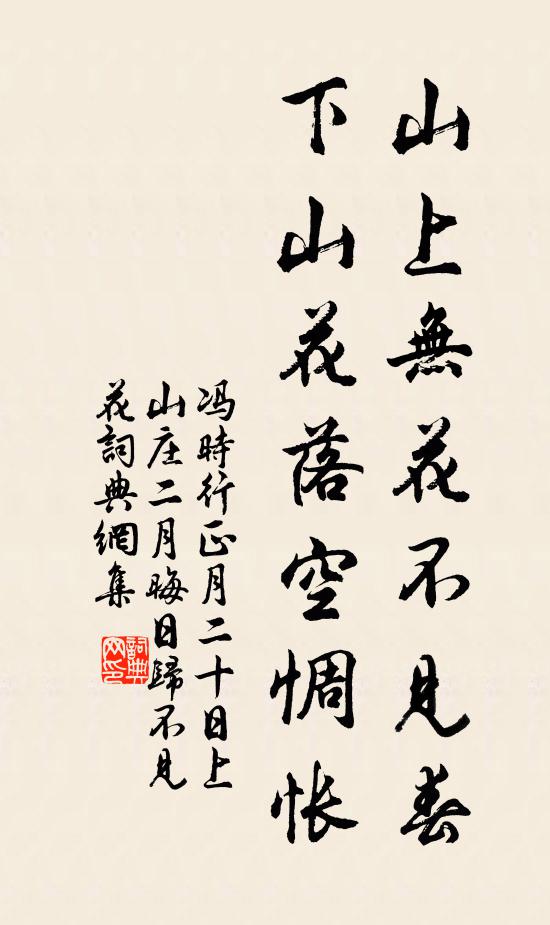 山上無花不見春
下山花落空惆怅
冯時行正月二十日上
山庄二月晦日歸不見
花詞典網集
詞典
网印